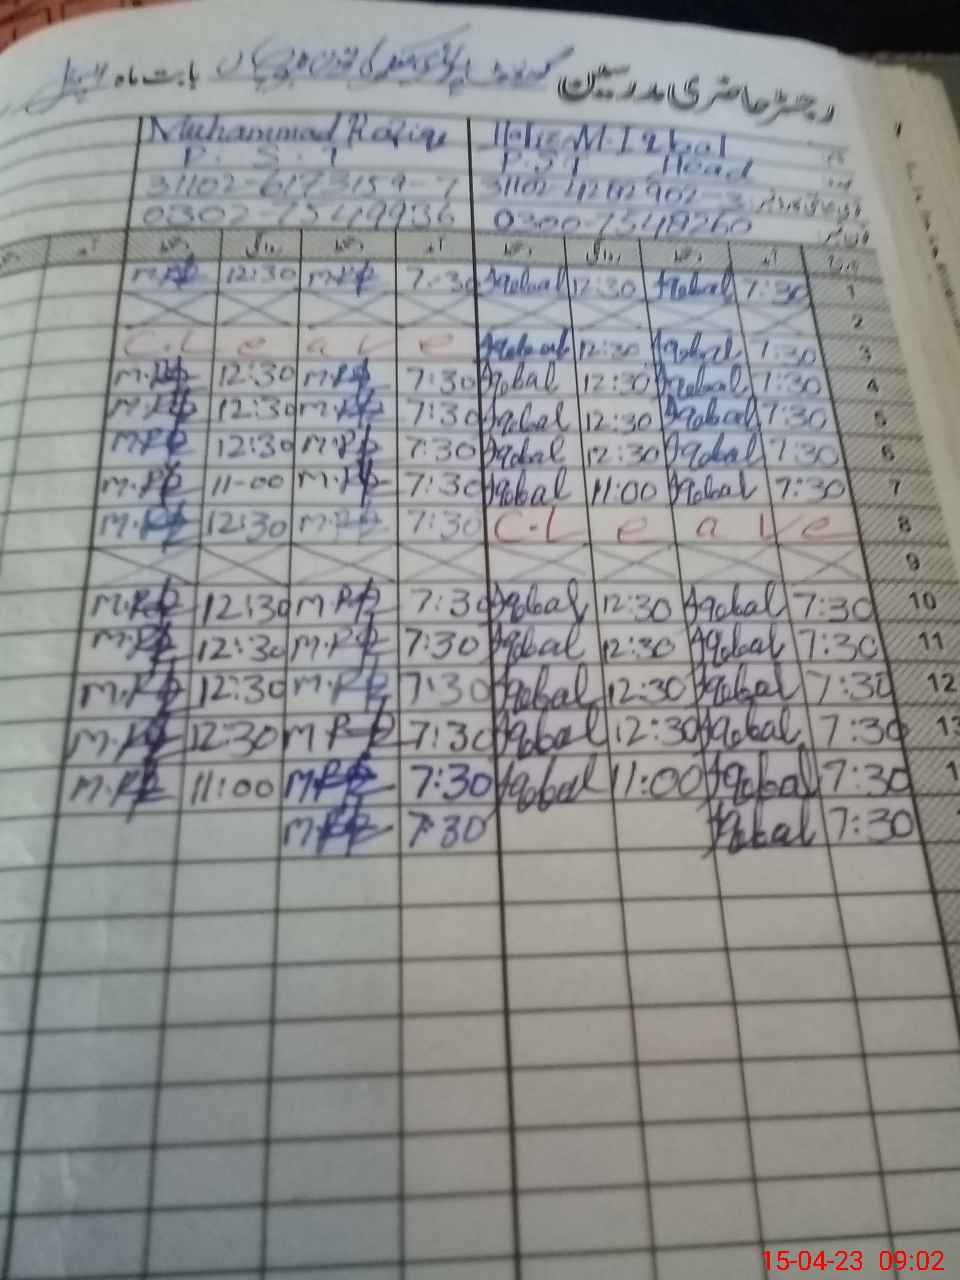 رجسٹر حاضری مدرسین بابت ماہ اپریل
Muhammad Rafique Hafiz M.Iqbal
P.S.T P.ST Head
31102-6173159-7 31102-4282902-3
0302-7549936 0300-7548260
M.RF 12:30 M.RF 7:30 Iqbal 12:30 Iqbal 7:30 1
2
C.L e a v e Iqbal 12:30 Iqbal 7:30 3
M.RF 12:30 M.RF 7:30 Iqbal 12:30 Iqbal 7:30 4
M.RF 12:30 M.RF 7:30 Iqbal 12:30 Iqbal 7:30 5
M.RF 12:30 M.RF 7:30 Iqbal 12:30 Iqbal 7:30 6
M.RF 11-00 M.RF 7:30 Iqbal 11:00 Iqbal 7:30 7
M.RF 12:30 M.RF 7:30 C.L e a v e 8
9
M.RF 12:30 M.RF 7:30 Iqbal 12:30 Iqbal 7:30 10
M.RF 12:30 M.RF 7:30 Iqbal 12:30 Iqbal 7:30 11
M.RF 12:30 M.RF 7:30 Iqbal 12:30 Iqbal 7:30 12
M.RF 12:30 M.RF 7:30 Iqbal 12:30 Iqbal 7:30 13
M.RF 11:00 M.RF 7:30 Iqbal 11:00 Iqbal 7:30 1
M.RF 7:30 Iqbal 7:30
15-04-23 09:02